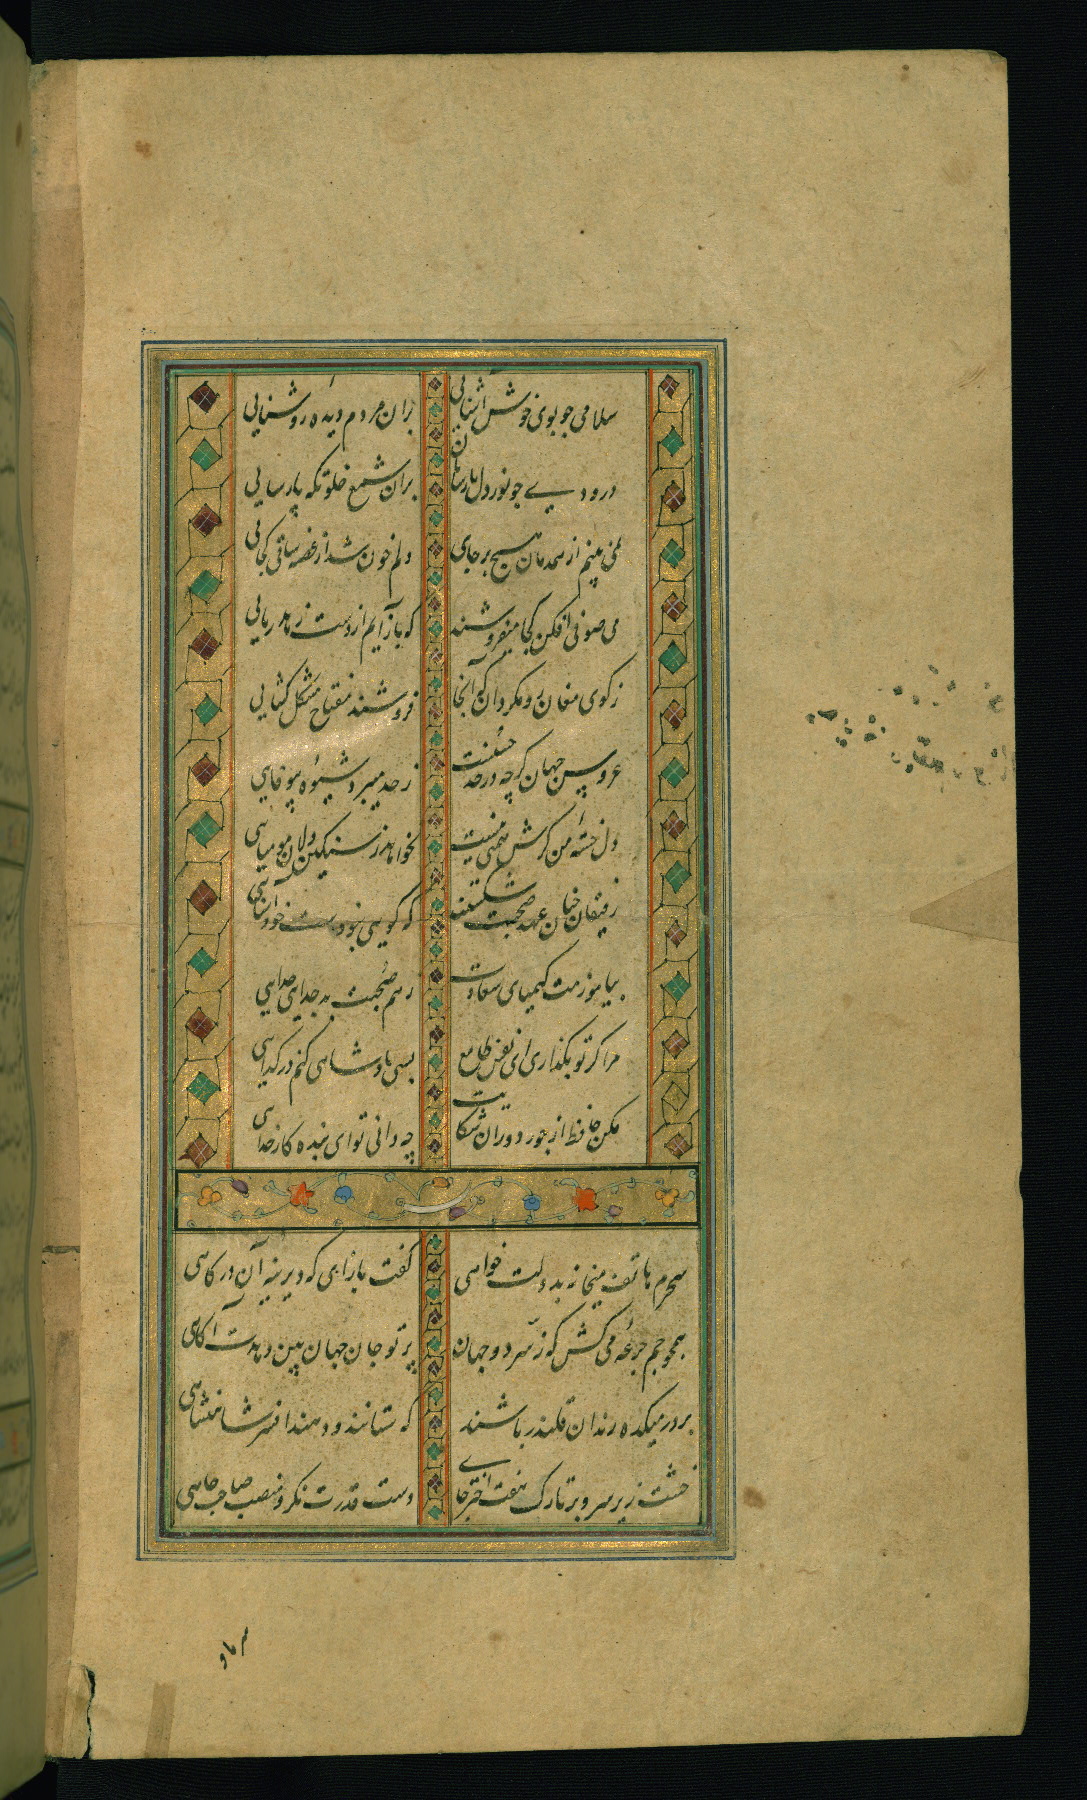 سلامی چو بوی خوش آشنایی
بران مردم دیده روشنایی
درودیے چو نور دل پارسایان
بران شمع خلوتگه پارسایی
نمی بینم از همدمان هیچ برجای
دلم خون شد از غصه ساقی کجایی
می صوفی افکن کجا میفروشند
که بازآیم از دست زهد ریایی
ز کوی مغان رو مگردان که آنجا
فروشند مفتاح مشکل گشایی
عروس جهان گرچه در حد حسنست
ز حد میبرد شیوه بیوفایی
دل خسته من گرش همتی نیست
نخواهد ز سنگین دلان مومیایی
رفیقان چنان عهد صحبت شکستند
که گویی نبودست خود آشنایی
بیاموزمت کیمیای سعادت
ز هم صحبت بد جدایی جدایی
مرا گر تو بگذاری ای نفس طامع
بسی پادشاهی کنم در گدایی
مکن حافظ از جور دوران شکایت
چه دانی تو ای بنده کار خدای
سحرم هاتف میخانه بدولت خواهی
گفت بازآی که دیرینه آن درگاهی
همچو جم جرعه می کش که ز سر دو جهان
پرتو جام جهان بین دهدت آگاهی
بر در میکده رندان قلندر باشند
که ستانند و دهند افسر شاهنشاهی
خشت زیر سر و بر تارک هفت اختر پای
دست قدرت نگر و منصب صاحب جاهی